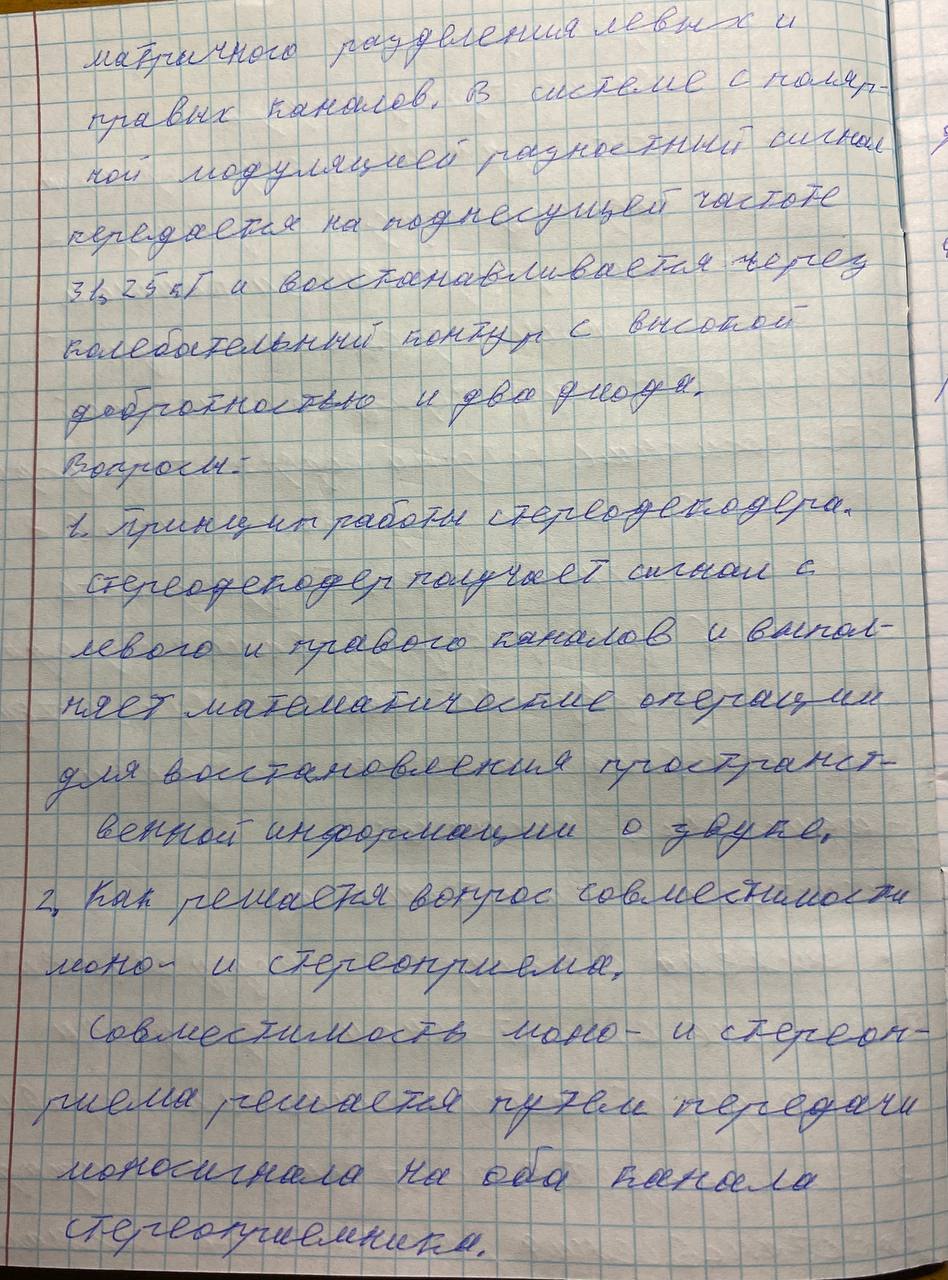 матричного разделения левых и
правых каналов. В системе с поляр-
ной модуляцией разностный сигнал
передается на поднесущей частоте
31,25 кГ и восстанавливается через
колебательный контур с высокой
добротностью и два диода.
Вопросы:
1. Принцип работы стереодекодера.
Стереодекодер получает сигнал с
левого и правого каналов и выпол-
няет математические операции
для восстановления пространст-
венной информации о звуке.
2. Как решается вопрос совместимости
моно- и стереоприема.
Совместимость моно- и стереоп-
риема решается путем передачи
моносигнала на оба канала
стереоприемника.